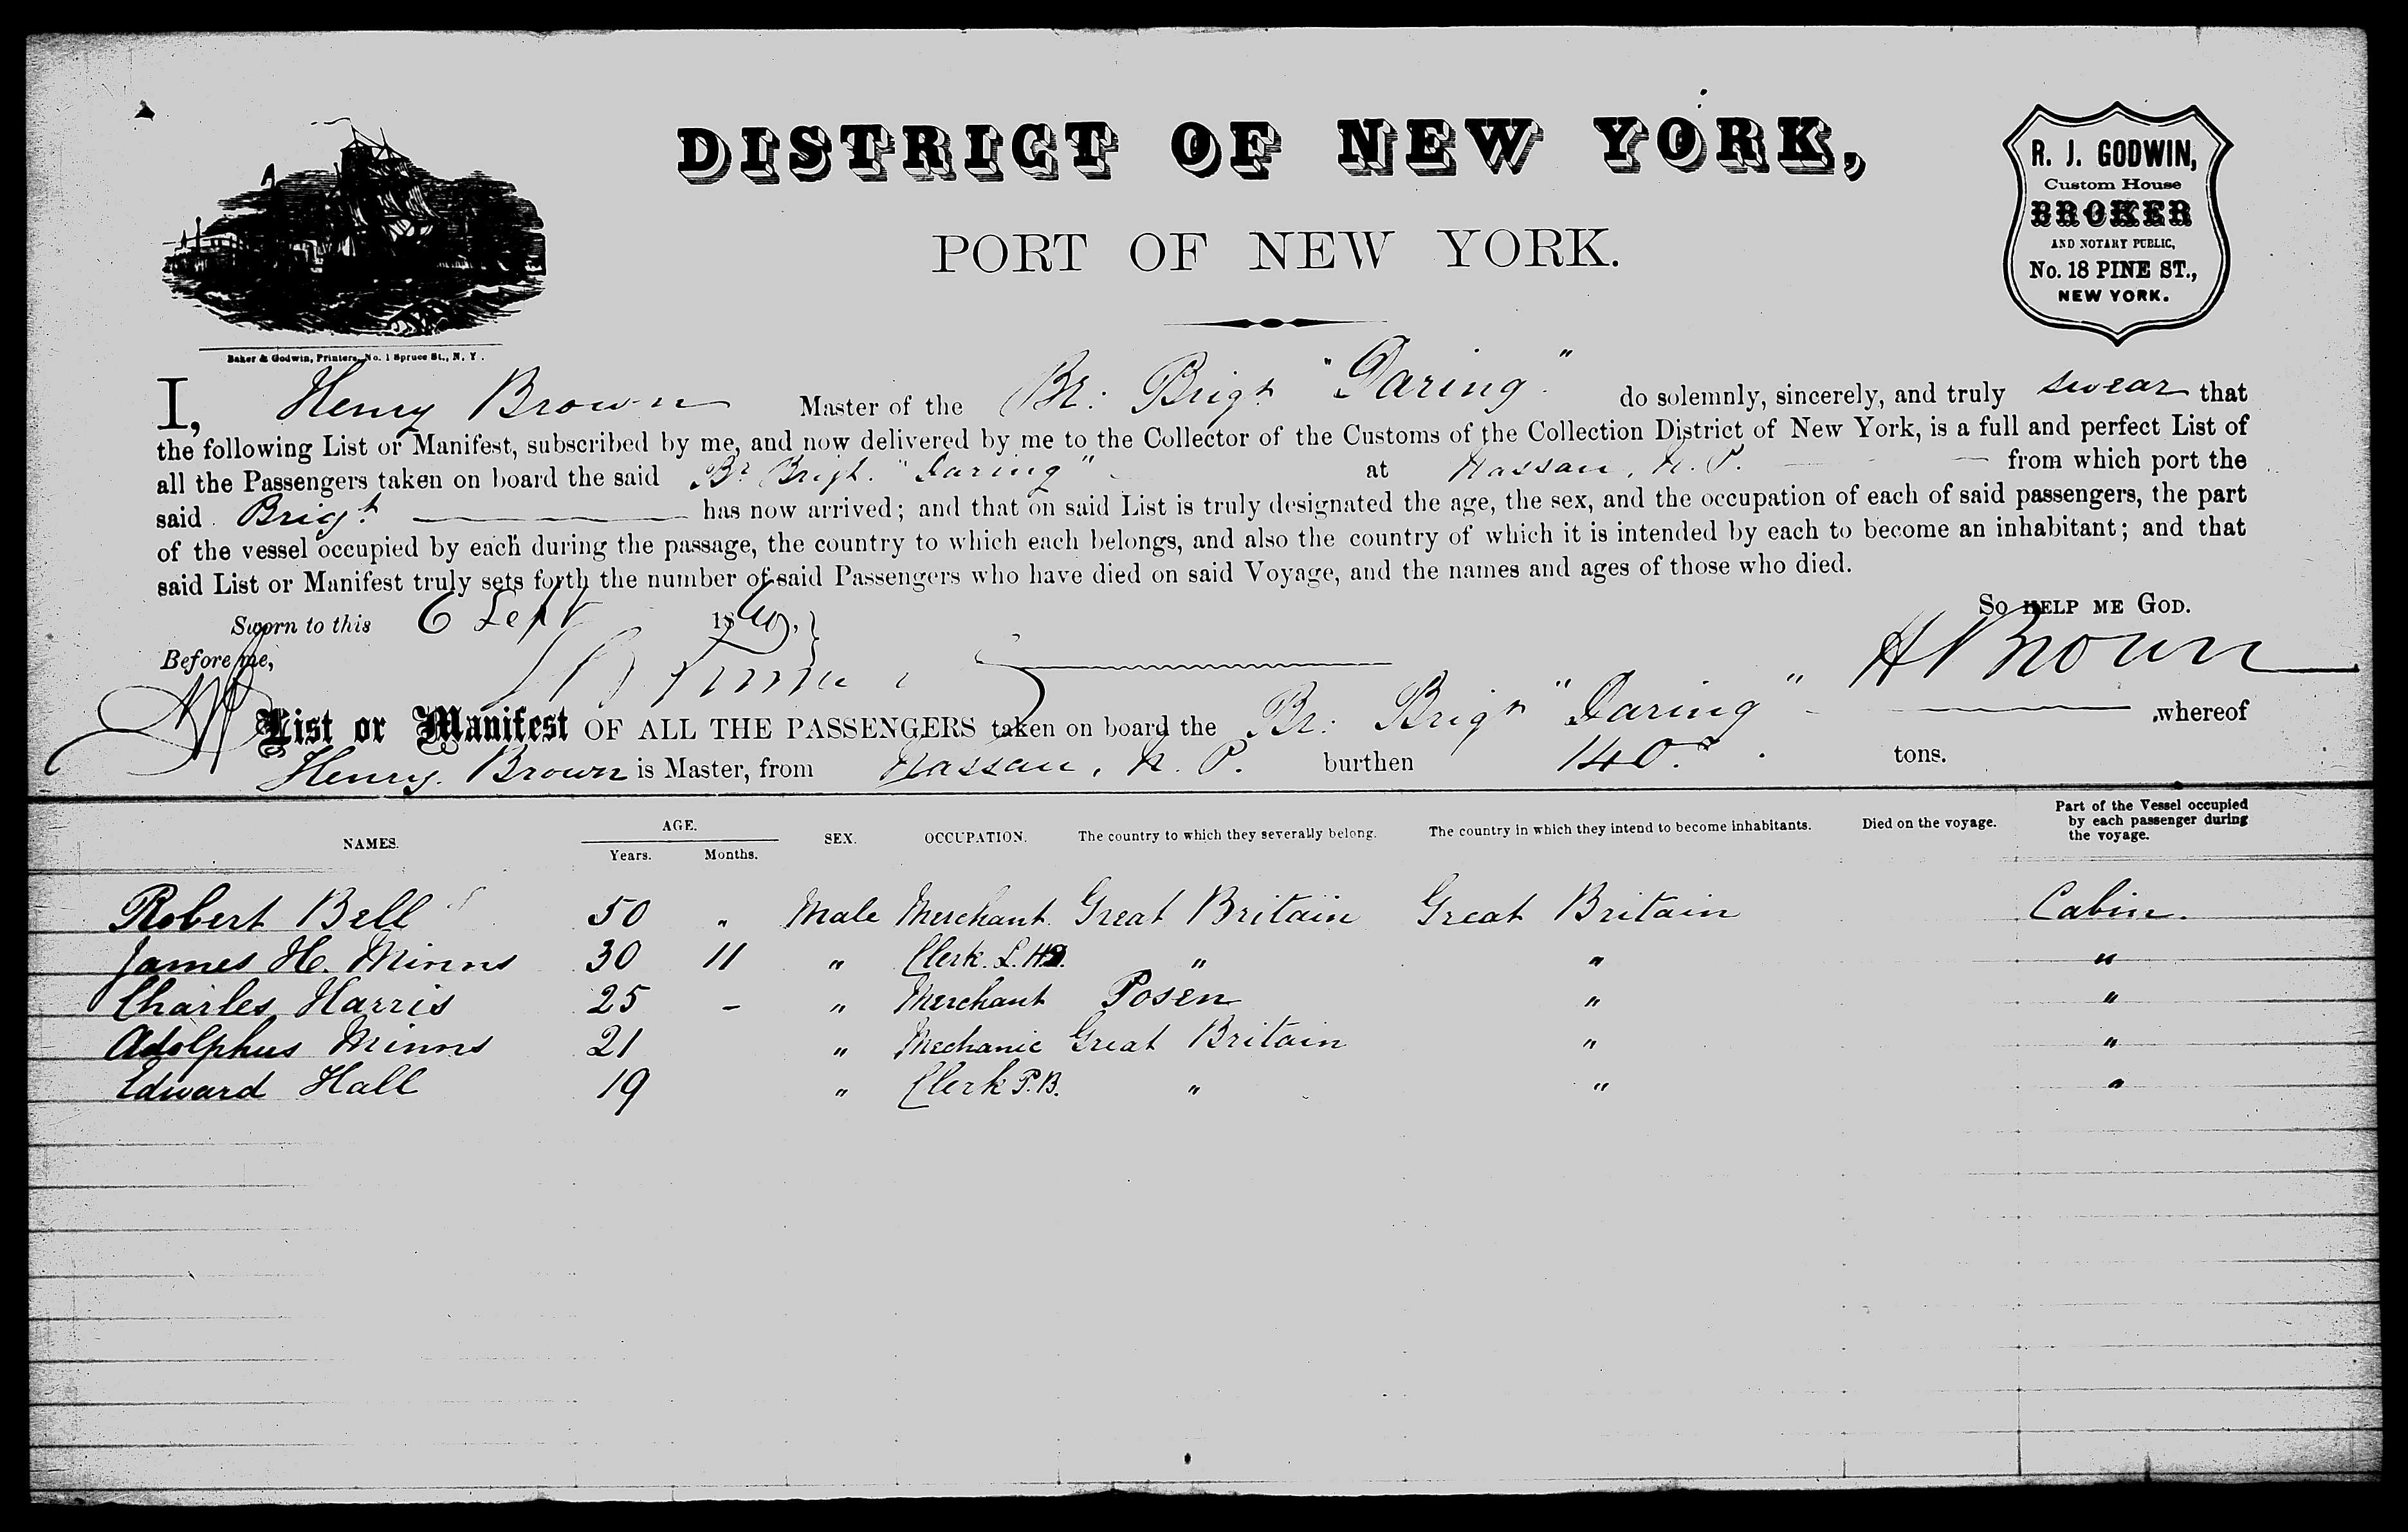 DISTRICT OF NEW YORK,
PORT OF NEW YORK.
R. J. GODWIN,
Custom House
BROKER
AND NOTARY PUBLIC,
No. 18 PINE ST.,
NEW YORK.
Baker & Godwin, Printers, No. 1 Spruce St., N. Y.
I, Henry Brown Master of the Br: Brigt "Daring" do solemnly, sincerely, and truly swear that
the following List or Manifest, subscribed by me, and now delivered by me to the Collector of the Customs of the Collection District of New York, is a full and perfect List of
all the Passengers taken on board the said Br Brigt. "Daring" at Nassau, N. P. from which port the
said Brigt has now arrived; and that on said List is truly designated the age, the sex, and the occupation of each of said passengers, the part
of the vessel occupied by each during the passage, the country to which each belongs, and also the country of which it is intended by each to become an inhabitant; and that
said List or Manifest truly sets forth the number of said Passengers who have died on said Voyage, and the names and ages of those who died.
So HELP ME GOD.
Sworn to this 6 Sept 1860,
Before me,
H Brown
List or Manifest OF ALL THE PASSENGERS taken on board the Br: Brigt "Daring" whereof
Henry Brown is Master, from Nassau, N. P. burthen 140 tons.
NAMES. AGE. Years. Months. SEX. OCCUPATION. The country to which they severally belong. The country in which they intend to become inhabitants. Died on the voyage. Part of the Vessel occupied by each passenger during the voyage.
Robert Bell 50 " Male Merchant Great Britain Great Britain Cabin.
James H. Minns 30 11 " Clerk " " "
Charles Harris 25 - " Merchant Posen " "
Adolphus Minns 21 " Mechanic Great Britain " "
Edward Hall 19 " Clerk P.B. " " "